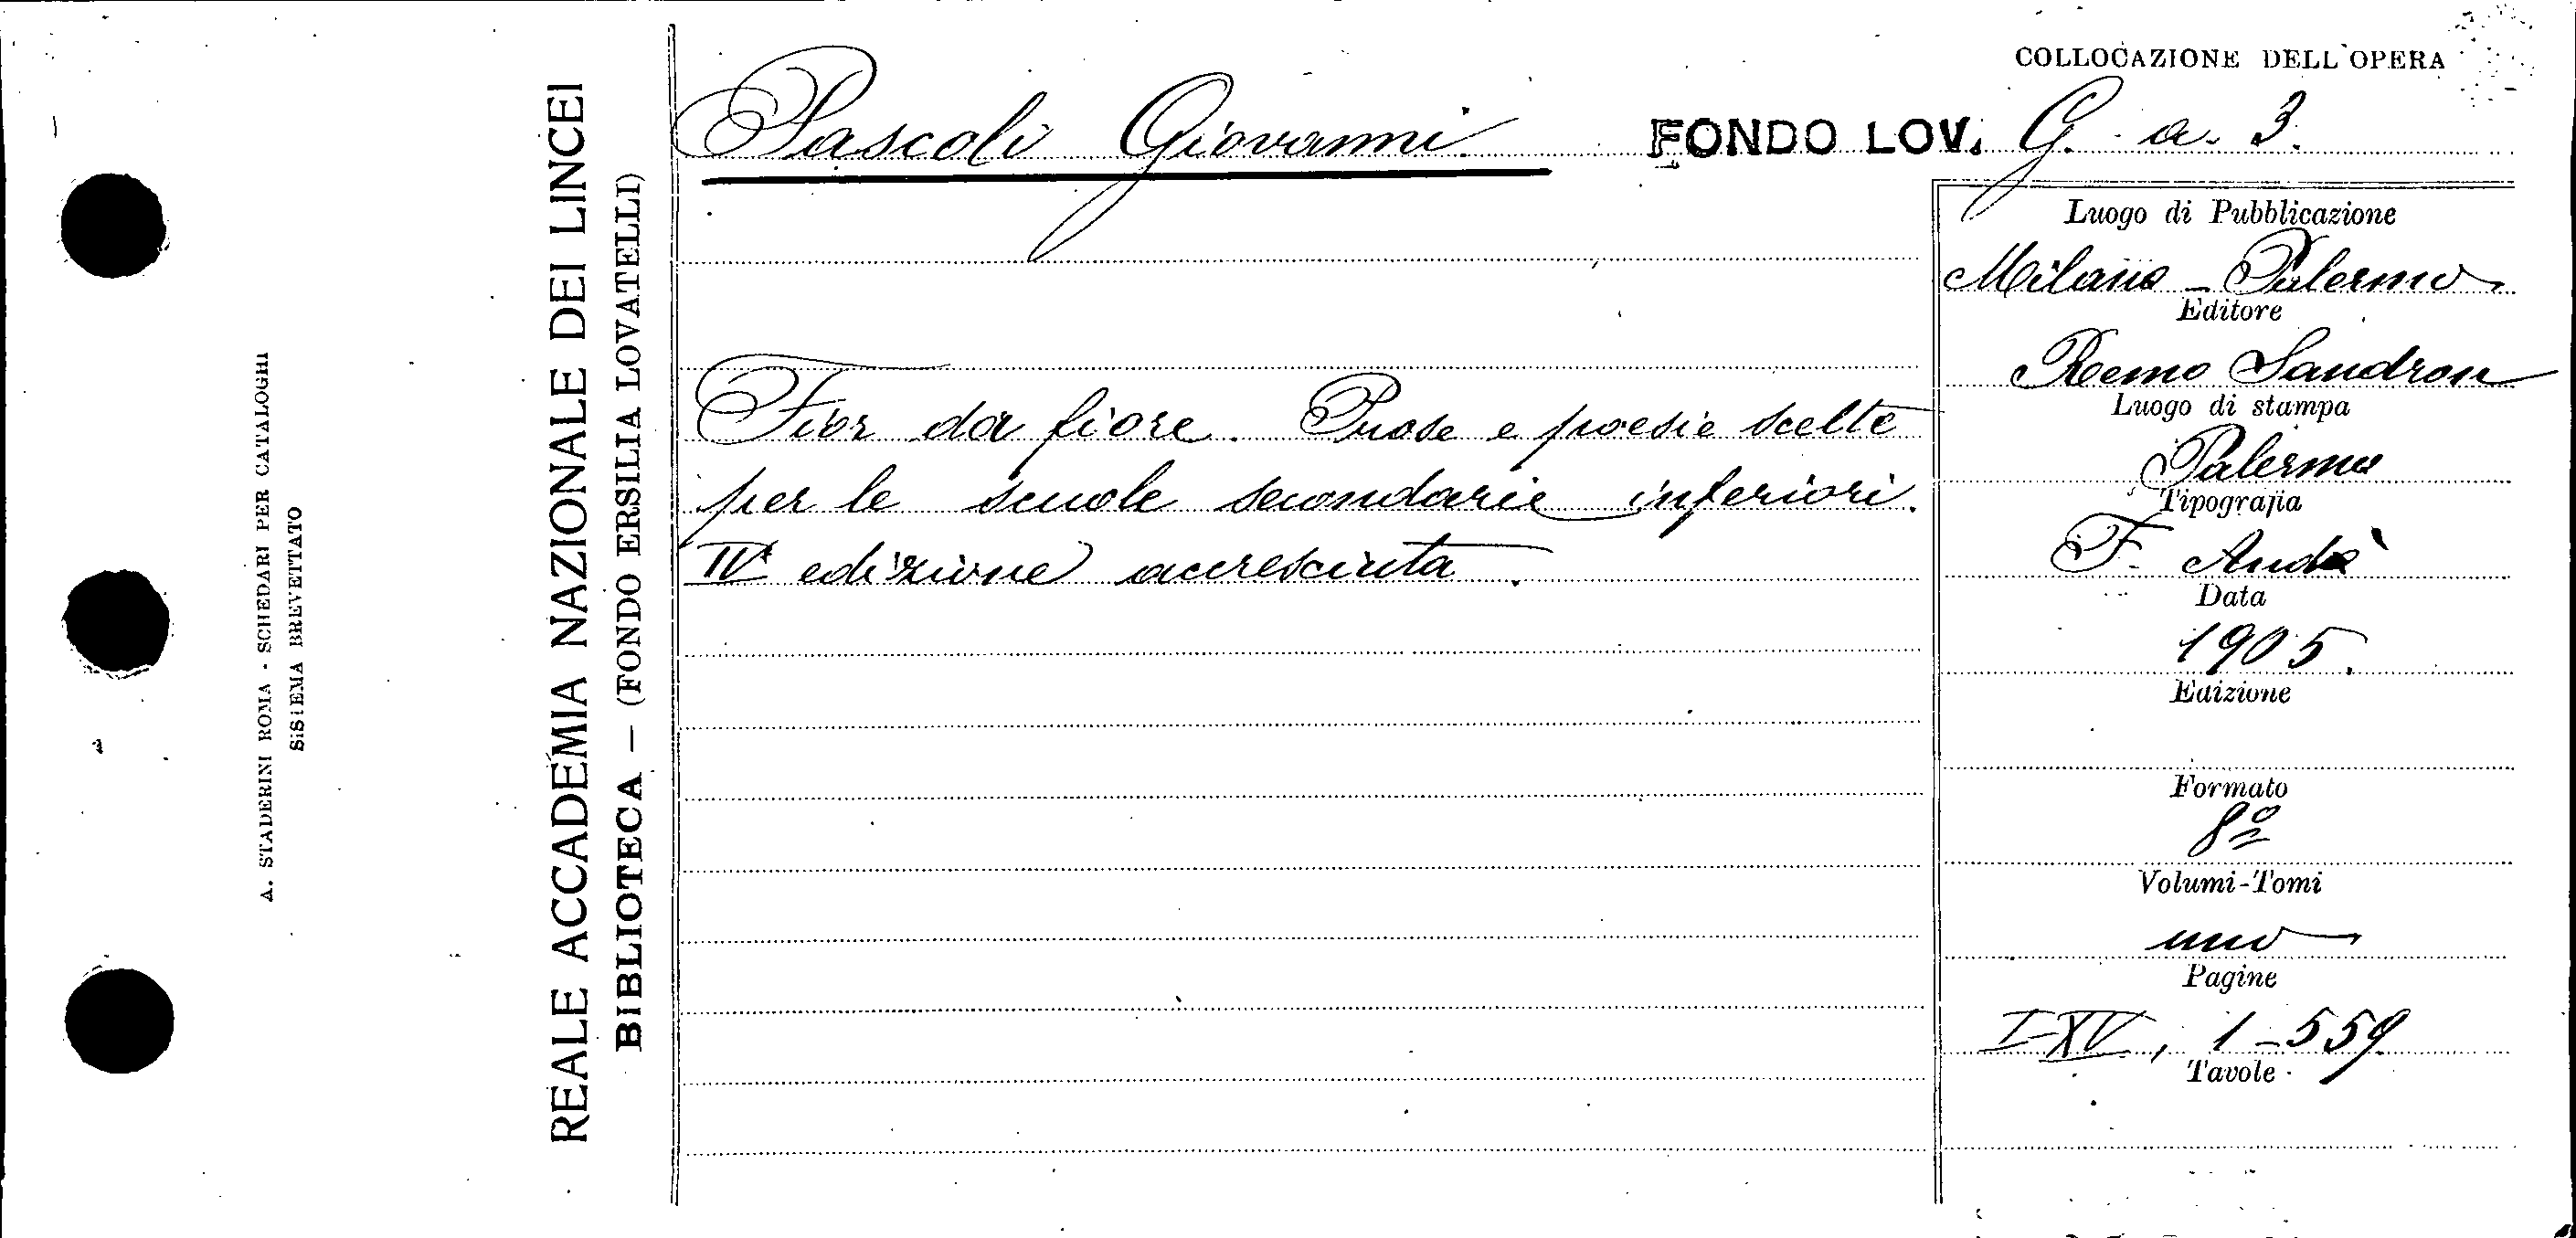 COLLOCAZIONE DELL'OPERA
Pascoli Giovanni.
FONDO LOV. G. a. 3.
Fior da fiore. Prose e poesie scelte
per le scuole secondarie inferiori.
IVª edizione accresciuta.
Luogo di Pubblicazione
Milano - Palermo
Editore
Remo Sandron
Luogo di stampa
Palermo
Tipografia
F. Andò
Data
1905.
Edizione
Formato
8º
Volumi-Tomi
uno
Pagine
I-XV, 1-559
Tavole
REALE ACCADEMIA NAZIONALE DEI LINCEI
BIBLIOTECA — (FONDO ERSILIA LOVATELLI)
A. STADERINI ROMA - SCHEDARI PER CATALOGHI
SISTEMA BREVETTATO